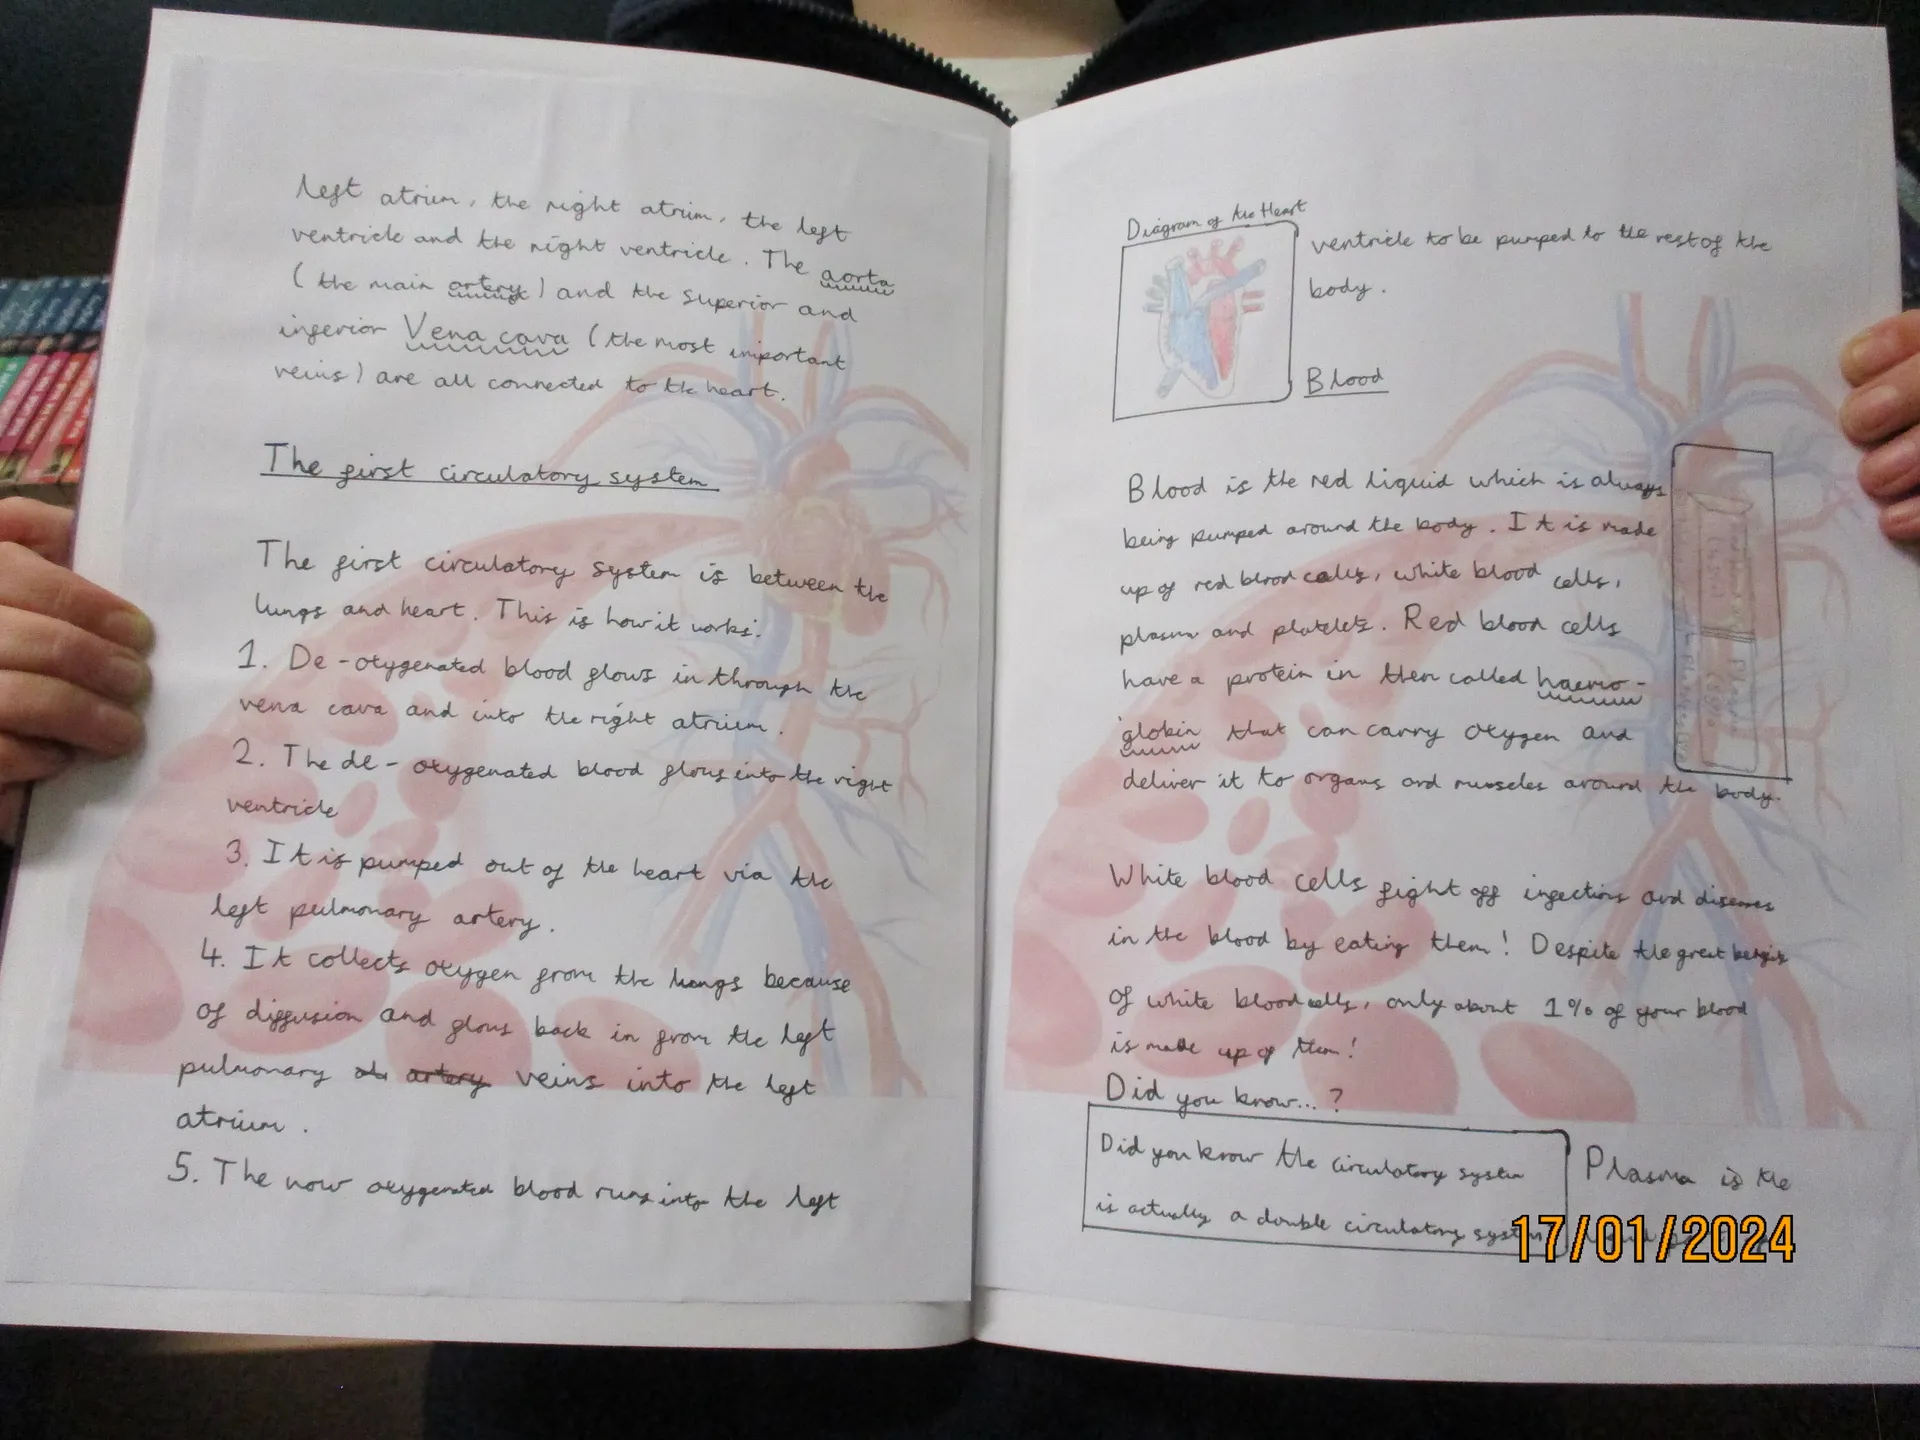 left atrium, the right atrium, the left
ventricle and the right ventricle. The aorta
(the main artery) and the superior and
inferior Vena cava (the most important
veins) are all connected to the heart.
The first circulatory system
The first circulatory system is between the
lungs and heart. This is how it works:
1. De-oxygenated blood flows in through the
vena cava and into the right atrium.
2. The de-oxygenated blood flows into the right
ventricle
3. It is pumped out of the heart via the
left pulmonary artery.
4. It collects oxygen from the lungs because
of diffusion and flows back in from the left
pulmonary artery veins into the left
atrium.
5. The now oxygenated blood runs into the left
Diagram of the Heart
ventricle to be pumped to the rest of the
body.
Blood
Blood is the red liquid which is always
being pumped around the body. It is made
up of red blood cells, white blood cells,
plasma and platelets. Red blood cells
have a protein in them called haemo-
globin that can carry oxygen and
deliver it to organs and muscles around the body.
White blood cells fight off infections and diseases
in the blood by eating them! Despite the great benefits
of white blood cells, only about 1% of your blood
is made up of them!
Did you know...?
Did you know the circulatory system
is actually a double circulatory system
Plasma is the
17/01/2024